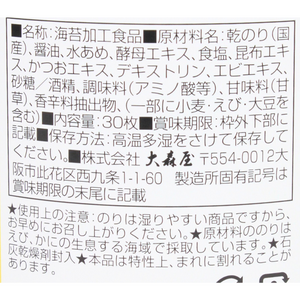 ■名称:海苔加工食品■原材料名:乾のり(国
産)、醤油、水あめ、酵母エキス、食塩、昆布エキ
ス、かつおエキス、デキストリン、エビエキス、
砂糖／酒精、調味料(アミノ酸等)、甘味料(甘
草)、香辛料抽出物、(一部に小麦・えび・大豆を
含む)■内容量:30枚■賞味期限:枠外下部に
記載■保存方法:高温多湿をさけて保存して
ください。■株式会社 大森屋 〒554-0012大
阪市此花区西九条1-1-60 製造所固有記号は
賞味期限の末尾に記載
★使用上の注意:のりは湿りやすい商品ですから、
お早めにお召し上がりください。★原材料ののりは
えび、かにの生息する海域で採取しています。★石
灰乾燥剤封入 ★本品は特性上、まれに割れることが
あります。